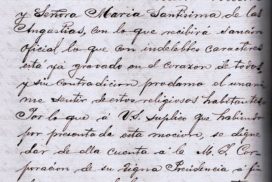 y Señora María Santísima de las
Angustias, con lo que recibirá sanción
oficial lo que con indelebles caracteres
está ya gravado en el corazon de todos
y sin contradicion proclama el unani-
me sentir de estos religiosos habitantes.
Por lo que á V.S. suplico que habiendo
por presentada esta mocion, se digne
dar de ella cuenta á la M. I. Cor-
poración de su digna Presidencia á fin